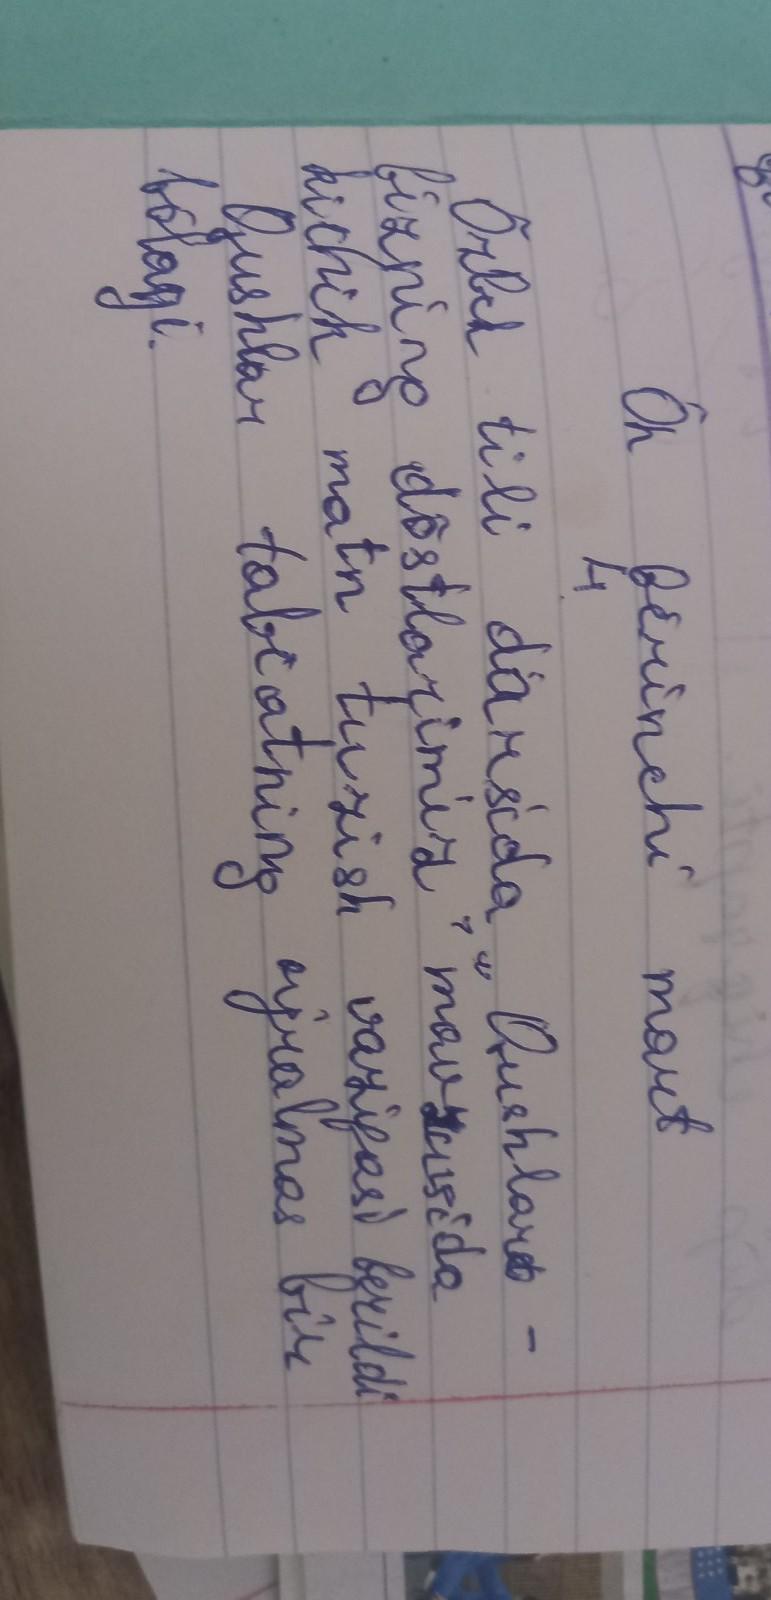 Ôn berinchi mart
4
Ôzbek tili darsida "Qushlar -
bizning dôstlarimiz" mavzusida
kichik matn tuzish vazifasi berildi
Qushlar tabiatning ajralmas bir
bôlagi.